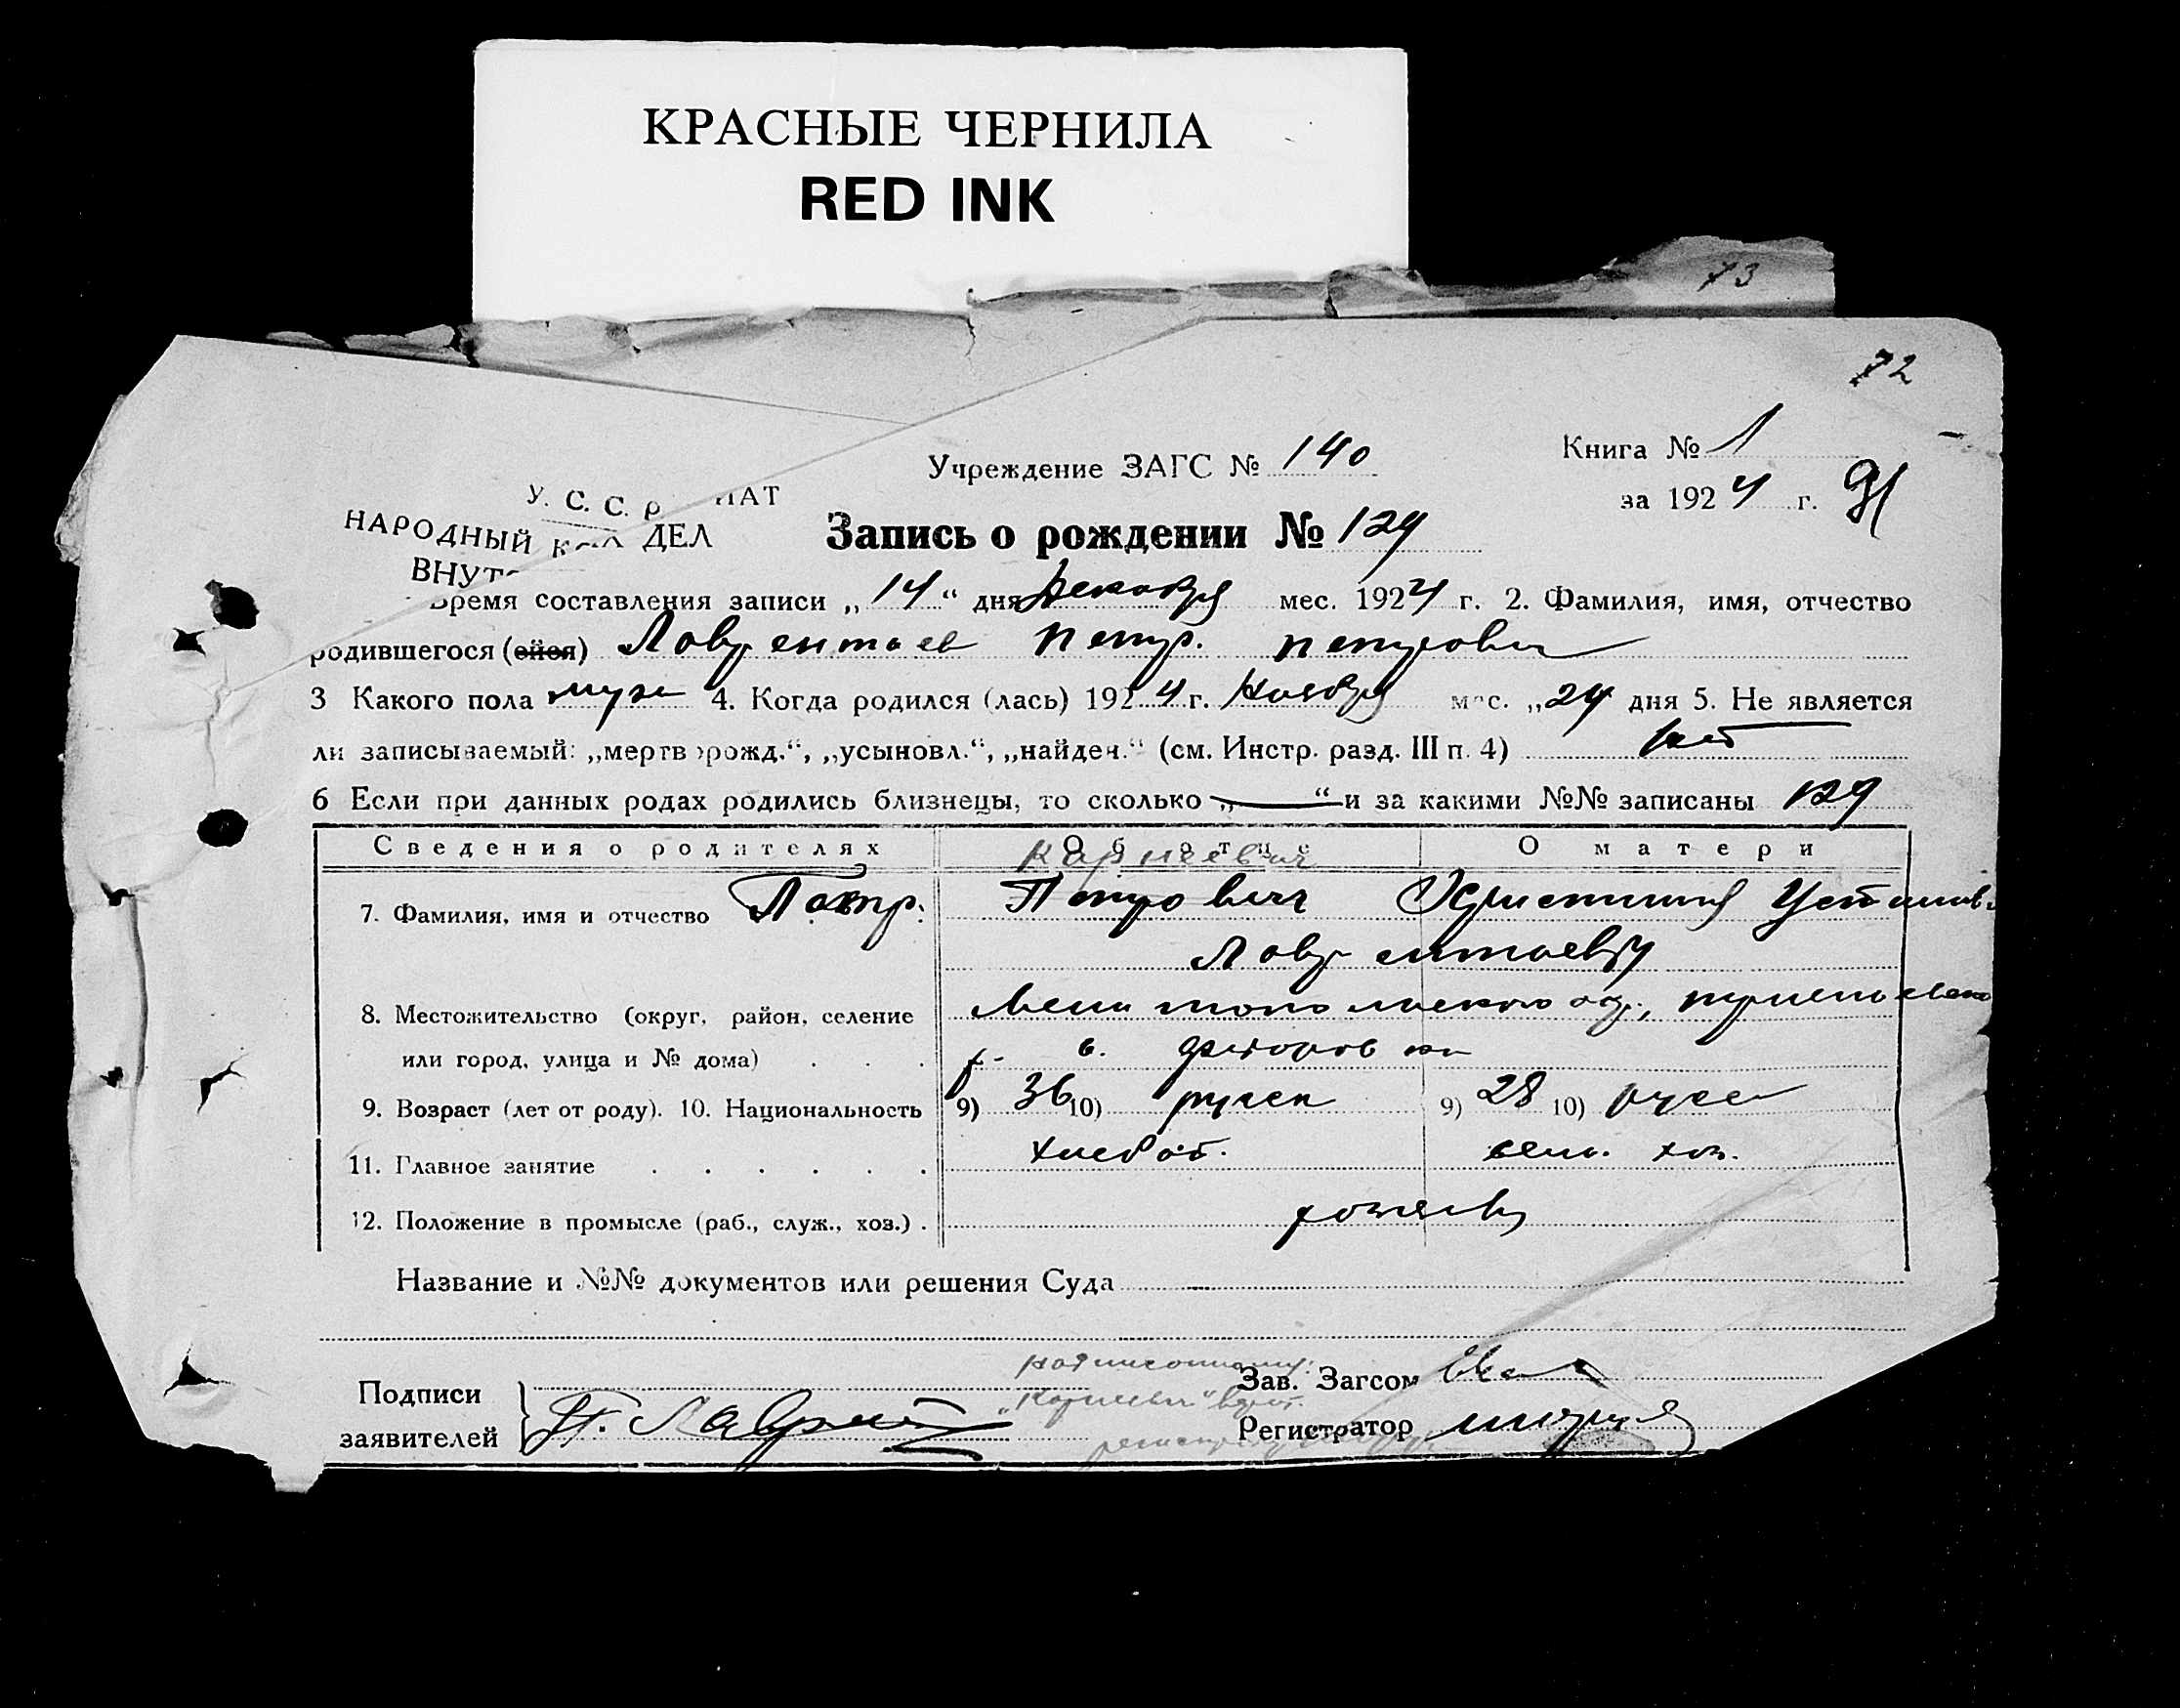 КРАСНЫЕ ЧЕРНИЛА
RED INK
73
72
Учреждение ЗАГС № 140
Книга № 1
за 1924 г. 91
У. С. С. Р
НАРОДНЫЙ ДЕЛ
Запись о рождении № 129
время составления записи „14“ дня Декабря мес. 1924 г. 2. Фамилия, имя, отчество
родившегося (ейся) Лаврентьев Петр. Петрович
3 Какого пола муж 4. Когда родился (лась) 1924 г. Ноября мес. „24 дня 5. Не является
ли записываемый: „мертворожд.“, „усыновл.“, „найден.“ (см. Инстр. разд. III п. 4) нет
6 Если при данных родах родились близнецы, то сколько „—“ и за какими №№ записаны 129
Сведения о родителях Об отце О матери
Карнеевич
7. Фамилия, имя и отчество Петр. Петрович Христиния
Лаврентьевы
8. Местожительство (округ, район, селение Мелитопольского окр.,
или город, улица и № дома) . . . р. с.
9. Возраст (лет от роду). 10. Национальность 9) 36 10) русск 9) 28 10) русс
11. Главное занятие . . . . . . хлебоп. сель. хоз.
12. Положение в промысле (раб., служ., хоз.) . хозяева
Название и №№ документов или решения Суда
Подписи
заявителей
П. Лаврен
Зав. Загсом
Регистратор